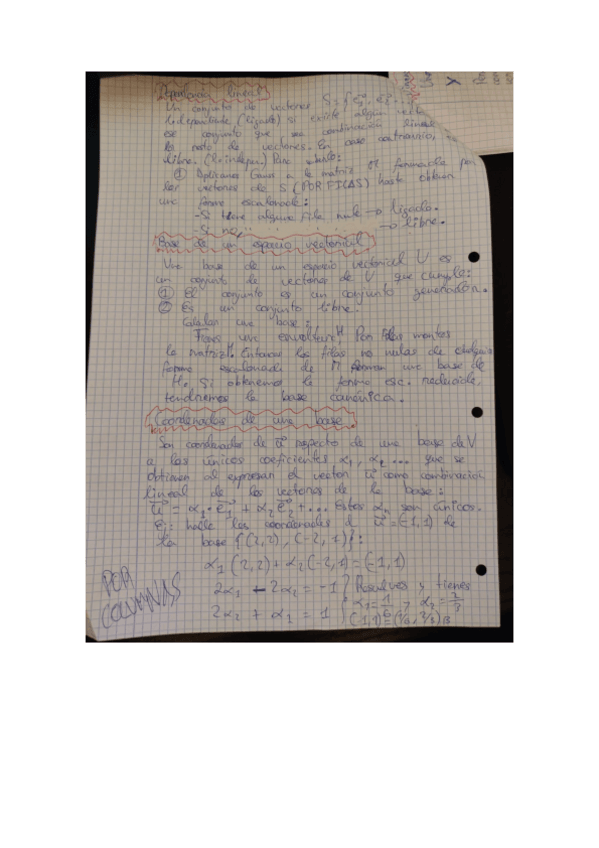 Dependencia lineal
Un conjunto de vectores S = {e₁, e₂ ...
l. dependiente (ligado) si existe algún vect
ese conjunto que sea combinación lineal
de resto de vectores. En caso contrario,
libre. (l. indepen.) Para saberlo:
① Aplicamos Gauss a la matriz M formada por
los vectores de S (POR FILAS) hasta obtener
una forma escalonada:
- Si tiene alguna fila nula → ligado.
- Si no, → libre.
Base de un espacio vectorial
Una base de un espacio vectorial V es
un conjunto de vectores de V que cumple:
① El conjunto es un conjunto generador.
② Es un conjunto libre.
una base:
Tienes una H. Por filas montas
la matriz M. Entonces las filas no nulas de
forma escalonada de M forman una base de
H. Si obtenemos la forma esc. reducida,
tendremos la base canónica.
Coordenadas de una base
Son coordenadas de u⃗ respecto de una base de V
a los únicos coeficientes α₁, α₂ ... que se
obtienen al expresar el vector u⃗ como combinación
lineal de los vectores de la base:
u⃗ = α₁·e⃗₁ + α₂e⃗₂ + ... Estos αₙ son únicos.
Ej: halle las coordenadas d u⃗ = (-1,1) de
la base {(2,2), (-2,1)}:
α₁(2,2) + α₂(-2,1) = (-1,1)
2α₁ - 2α₂ = -1 } Resuelves y tienes
2α₁ + α₂ = 1 } α₁ = 1/6, α₂ = 2/3
(-1,1) = (1/6, 2/3)B
POR
COLUMNAS